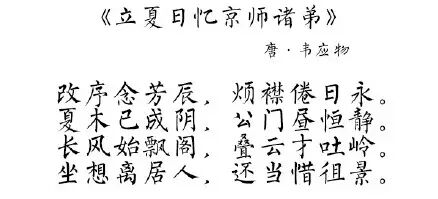 《立夏日忆京师诸弟》
唐·韦应物
改序念芳辰，烦襟倦日永。
夏木已成阴，公门昼恒静。
长风始飘阁，叠云才吐岭。
坐想离居人，还当惜徂景。